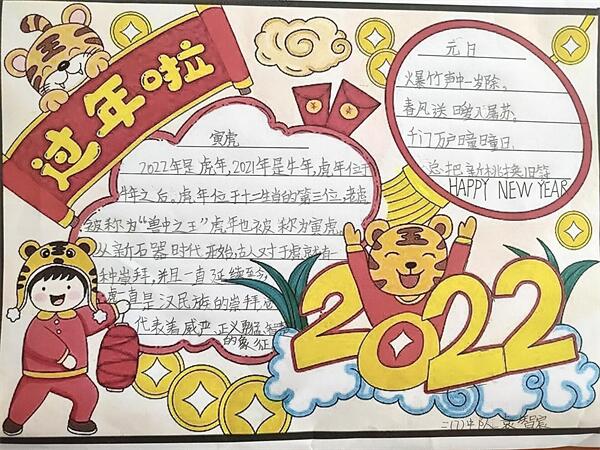 过年啦
寅虎
2022年是虎年,2021年是牛年,虎年位于
牛年之后。虎年位于十二生肖的第三位,老虎
被称为“兽中之王”虎年也被称为寅虎,
从新石器时代开始,古人对于虎就有
种崇拜,并且一直延续至今
虎一直是汉民族的崇拜
代表着威严,正义
的象征
元日
爆竹声中一岁除。
春风送暖入屠苏。
千门万户曈曈日,
总把新桃换旧符
HAPPY NEW YEAR
2022
三(7)中队 袁智宸